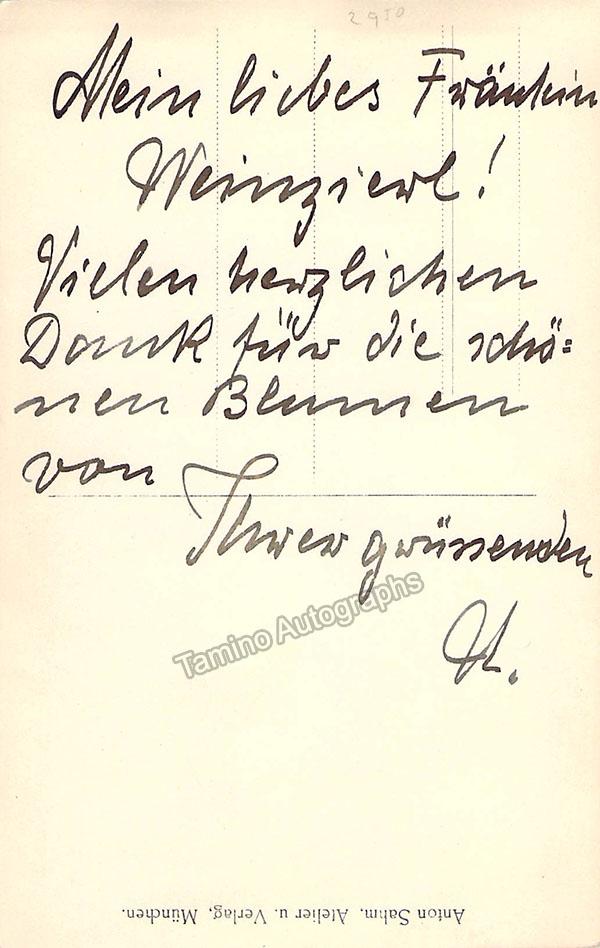 2950
Mein liebes Fräulein
Weinzierl!
Vielen herzlichen
Dank für die schö=
nen Blumen
von
Ihrer grüssenden
H.
Tamino Autographs
Anton Sahm, Atelier u. Verlag, München.